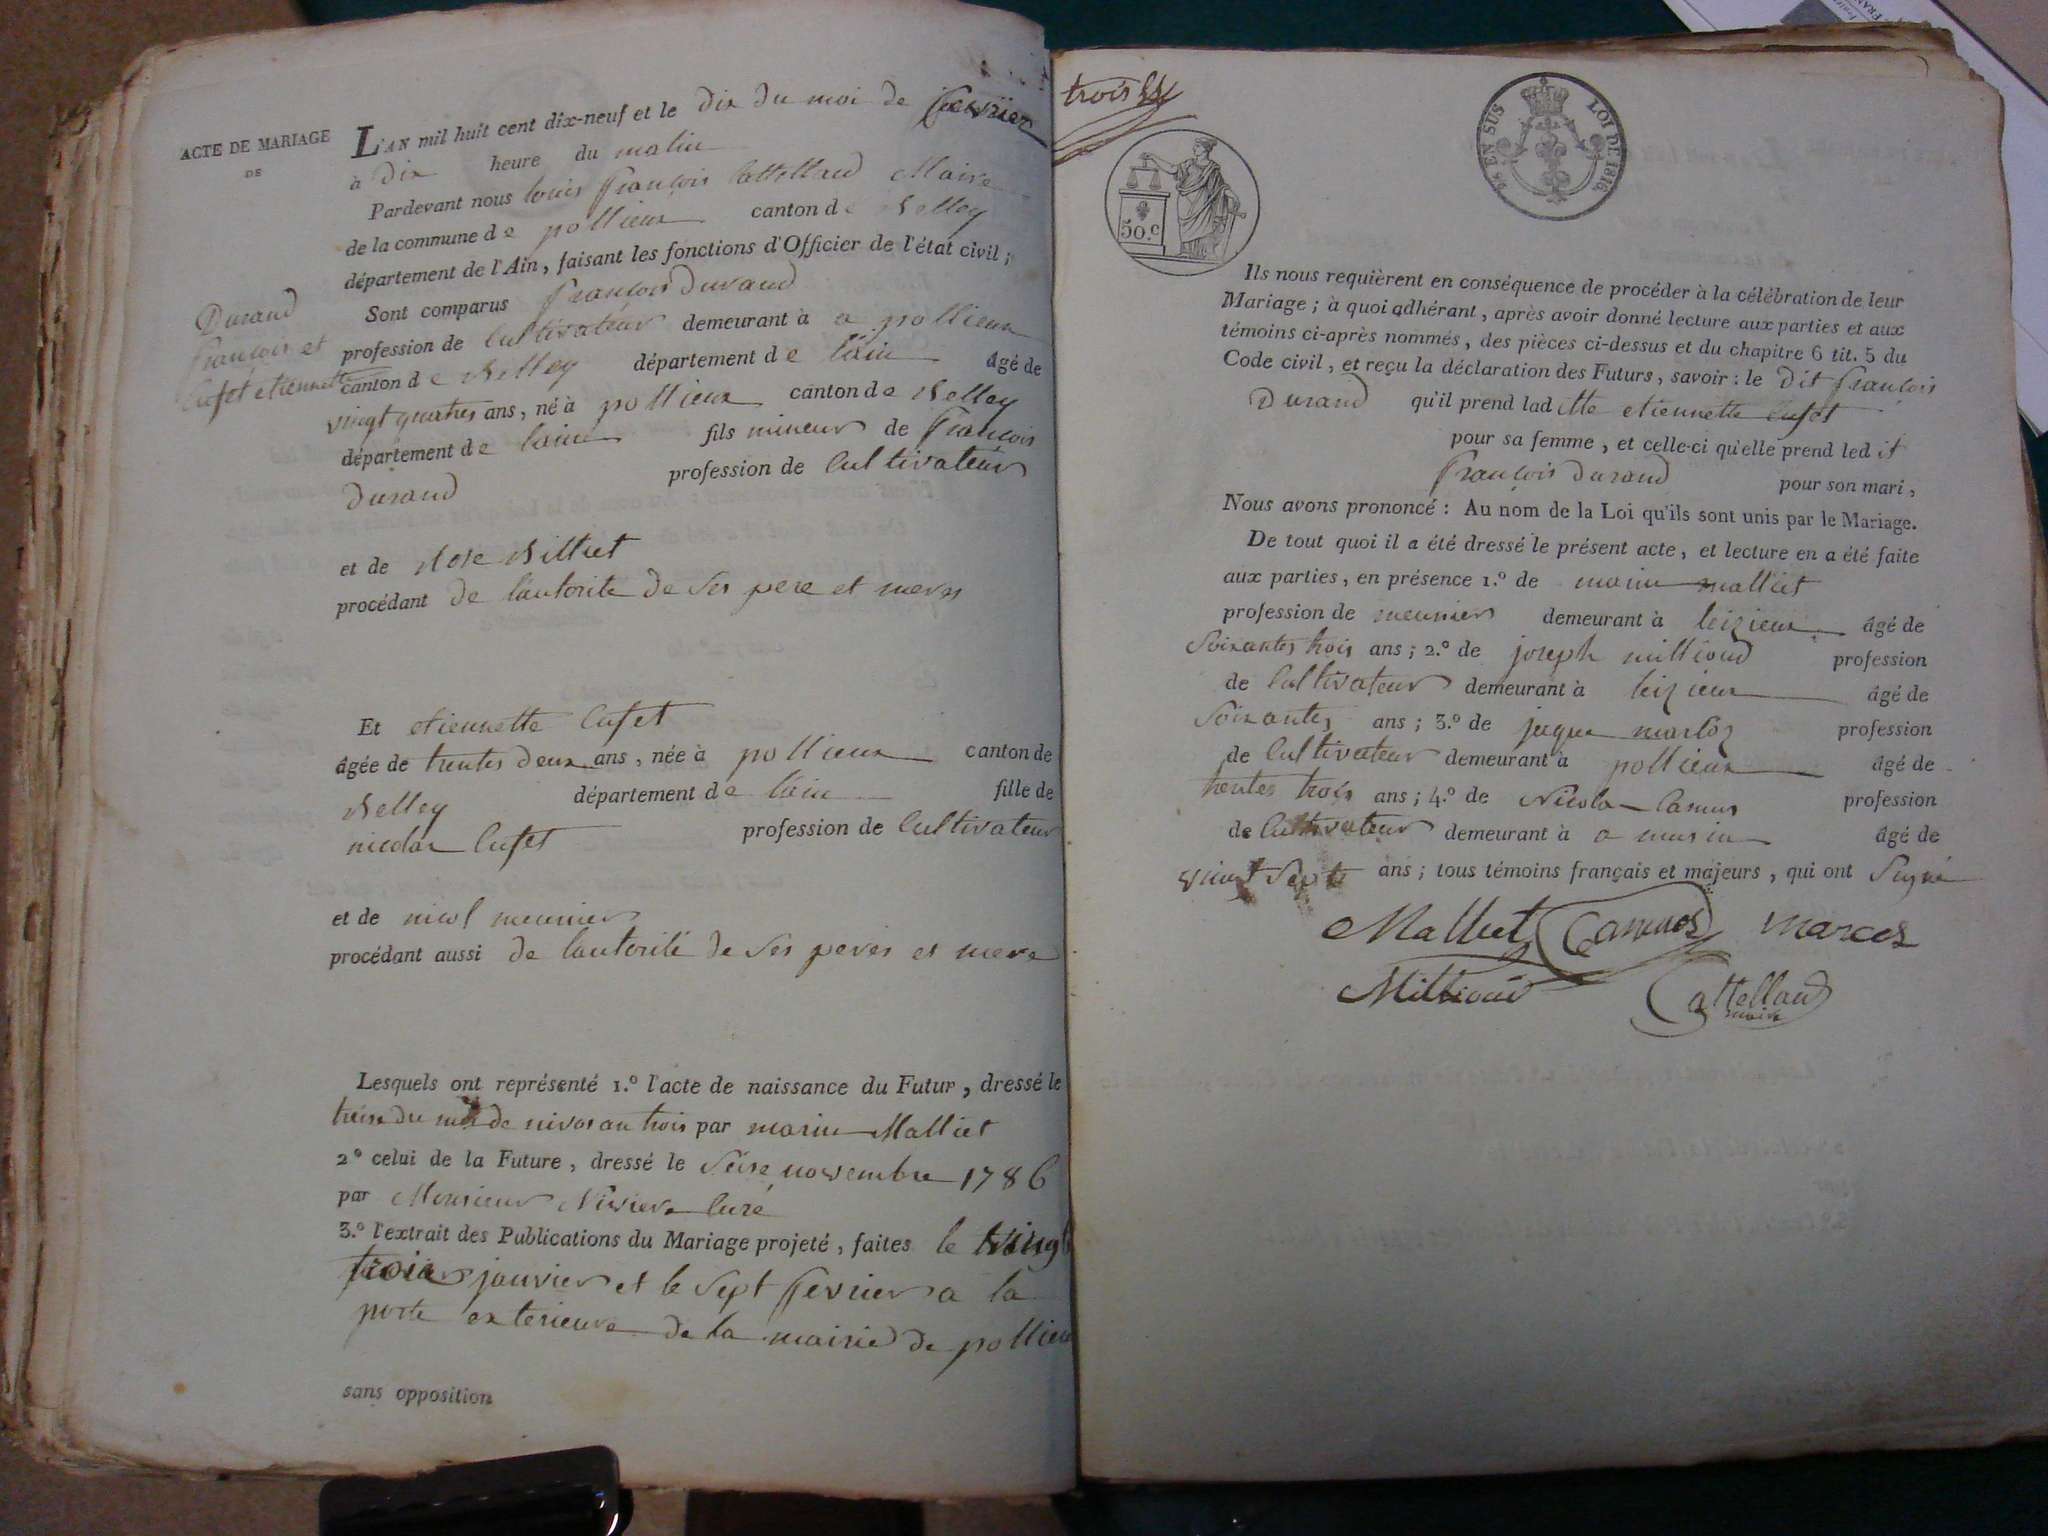 ACTE DE MARIAGE
DE
Durand
françois et
Cufet etiennette
L'AN mil huit cent dix-neuf et le dix du moi de fevrier
à dix heure du matin
Pardevant nous louis françois Cattelland Maire
de la commune de pollieux canton de Belley
département de l'Ain, faisant les fonctions d'Officier de l'état civil;
Sont comparus françois Durand
profession de Cultivateur demeurant à a pollieux
canton de Belley département de lain âgé de
vingt quatres ans, né à pollieux canton de Belley
département de lain fils mineur de françois
Durand profession de Cultivateur
et de Rose Billiet
procédant de lautorite de ses pere et meres
Et etiennette Cufet
âgée de trentes deux ans, née à pollieux canton de
Belley département de lain fille de
nicolas Cufet profession de Cultivateur
et de nicol meunier
procédant aussi de lautorité de ses peres et mere
Lesquels ont représenté 1.º l'acte de naissance du Futur, dressé le
treise du mois de nivos an trois par marin Malliet
2º celui de la Future, dressé le seise novembre 1786
par Monsieur Curé
3.º l'extrait des Publications du Mariage projeté, faites le vingt
trois janvier et le sept fevrier a la
porte exterieure de la mairie de pollieu
sans opposition
trois
50.c
EN SUS LOI DE 1816
Ils nous requièrent en conséquence de procéder à la célébration de leur
Mariage; à quoi adhérant, après avoir donné lecture aux parties et aux
témoins ci-après nommés, des pièces ci-dessus et du chapitre 6 tit. 5 du
Code civil, et reçu la déclaration des Futurs, savoir: le dit françois
Durand qu'il prend lad itte etiennette Cufet
pour sa femme, et celle-ci qu'elle prend led it
françois durand pour son mari,
Nous avons prononcé: Au nom de la Loi qu'ils sont unis par le Mariage.
De tout quoi il a été dressé le présent acte, et lecture en a été faite
aux parties, en présence 1.º de marin malliet
profession de meunier demeurant à leizieux âgé de
soixantes trois ans; 2.º de joseph millioud profession
de Cultivateur demeurant à leizieux âgé de
soixantes ans; 3.º de jaque martos profession
de Cultivateur demeurant à pollieux âgé de
trentes trois ans; 4.º de Nicola Camus profession
de Cultivateur demeurant à a musin âgé de
vingt sept ans; tous témoins français et majeurs, qui ont signé
Malliet Camus marcos
Millioud Cattelland
maire